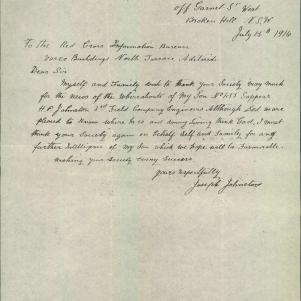 off Garnet St West
Broken Hill N.S.W
July 15th 1916
To The Red Cross Information Bureau
Verco Buildings North Terrace Adelaide
Dear Sir
Myself and Family wish to thank your Society very much
for the news of the whereabouts of my Son No 453 Sapper
H.P. Johnston 3rd Field Company Engineers Although Sad were
pleased to know where he is and among living thank God, I must
thank your Society again on behalf Self and Family for any
further Intelligence of my Son which we hope will be Favourable.
making your Society every Success
yours respectfully
Joseph Johnston